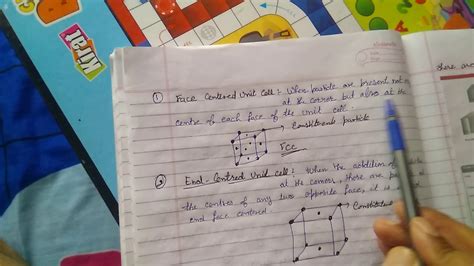 Kirat
① Face Centered Unit Cell:- When particle are present not
at the corner but also at the
centre of each face of the Unit cell.
→ Constituent particle
FCC
② End-Centred Unid cell:- When the addition of
at the corners, there are
the centres of any two opposite face, it is
end face centered.
→ Constituent
there are